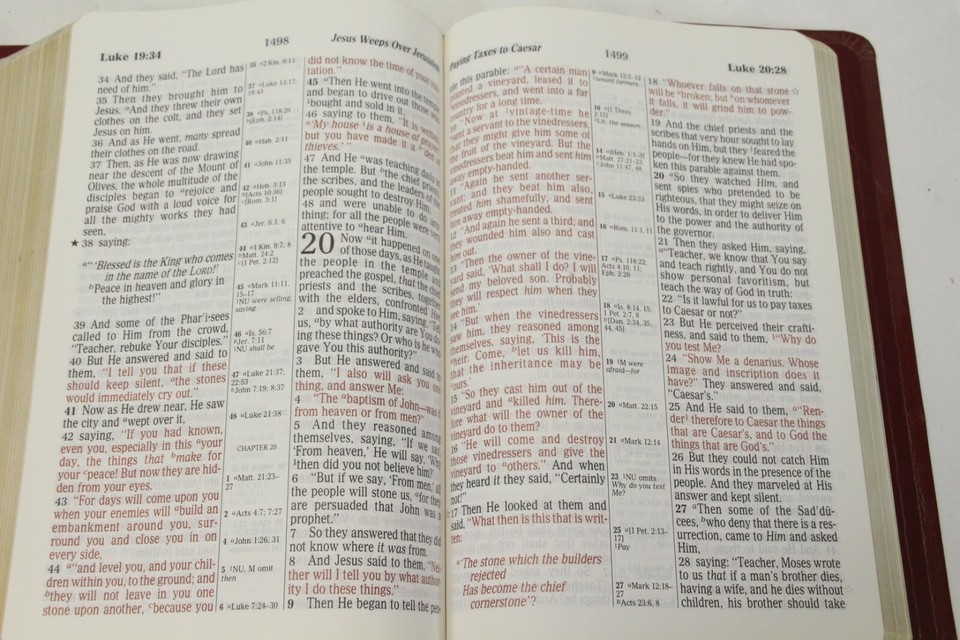 Luke 19:34
1498
Jesus Weeps Over Jerusalem
34 And they said, "The Lord has
need of him."
35 Then they brought him to
Jesus. And they threw their own
clothes on the colt, and they set
Jesus on him.
36 And as He went, many spread
their clothes on the road.
37 Then, as He was now drawing
near the descent of the Mount of
Olives, the whole multitude of the
disciples began to rejoice and
praise God with a loud voice for
all the mighty works they had
seen,
★ 38 saying:
"'Blessed is the King who comes
in the name of the LORD!'
Peace in heaven and glory in
the highest!"
39 And some of the Phar·i·sees
called to Him from the crowd,
"Teacher, rebuke Your disciples."
40 But He answered and said to
them, "I tell you that if these
should keep silent, the stones
would immediately cry out."
41 Now as He drew near, He saw
the city and wept over it,
42 saying, "If you had known,
even you, especially in this your
day, the things that make for
your peace! But now they are hid-
den from your eyes.
43 "For days will come upon you
when your enemies will build an
embankment around you, sur-
round you and close you in on
every side,
44 "and level you, and your chil-
dren within you, to the ground; and
they will not leave in you one
stone upon another, because you
40 Hab. 2:11
41 John 11:35
43 Jer. 6:3, 6
45 Mark 11:11,
15–17
NU were selling,
saying
46 Is. 56:7
Jer. 7:11
NU shall be
47 Luke 21:37;
22:53
John 7:19; 8:37
48 Luke 21:38
CHAPTER 20
1 Matt. 21:23–
27
2 Acts 4:7; 7:27
4 John 1:26, 31
5 NU, M omit
then
6 Luke 7:24–30
did not know the time of your
tation."
45 Then He went into the temple
and began to drive out those who
bought and sold in it,
46 saying to them, "It is written,
'My house is a house of prayer,'
but you have made it a 'den of
thieves.'"
47 And He was teaching daily in
the temple. But the chief priests,
the scribes, and the leaders of the
people sought to destroy Him,
48 and were unable to do any-
thing; for all the people were very
attentive to hear Him.
20 Now it happened on one
of those days, as He taught
the people in the temple and
preached the gospel, that the chief
priests and the scribes, together
with the elders, confronted Him
2 and spoke to Him, saying, "Tell
us, by what authority are You do-
ing these things? Or who is he who
gave You this authority?"
3 But He answered and said to
them, "I also will ask you one
thing, and answer Me:
4 "The baptism of John—was it
from heaven or from men?"
5 And they reasoned among
themselves, saying, "If we say,
'From heaven,' He will say, 'Why
then did you not believe him?'
6 "But if we say, 'From men,' all
the people will stone us, for they
are persuaded that John was a
prophet."
7 So they answered that they did
not know where it was from.
8 And Jesus said to them, "Nei-
ther will I tell you by what author-
ity I do these things."
9 Then He began to tell the peo-
Paying Taxes to Caesar
1499
Luke 20:28
ple this parable: "A certain man
planted a vineyard, leased it to
vinedressers, and went into a far
country for a long time.
10 "Now at vintage-time he
sent a servant to the vinedressers,
that they might give him some of
the fruit of the vineyard. But the
vinedressers beat him and sent him
away empty-handed.
11 "Again he sent another ser-
vant; and they beat him also,
treated him shamefully, and sent
him away empty-handed.
12 "And again he sent a third; and
they wounded him also and cast
him out.
13 "Then the owner of the vine-
yard said, 'What shall I do? I will
send my beloved son. Probably
they will respect him when they
see him.'
14 "But when the vinedressers
saw him, they reasoned among
themselves, saying, 'This is the
heir. Come, let us kill him,
that the inheritance may be
ours.'
15 "So they cast him out of the
vineyard and killed him. There-
fore what will the owner of the
vineyard do to them?
16 "He will come and destroy
those vinedressers and give the
vineyard to others." And when
they heard it they said, "Certainly
not!"
17 Then He looked at them and
said, "What then is this that is writ-
ten:
'The stone which the builders
rejected
Has become the chief
cornerstone'?
15 Luke 23:33
16 Rom. 11:1, 11
17 Ps. 118:22
Acts 4:10, 11;
Eph. 2:20
19 M were
afraid—for
20 Matt. 22:15
21 Mark 12:14
23 NU omits
Why do you test
Me?
25 [1 Pet. 2:13–
17]
Pay
27 Mark 12:18–
27
Acts 23:6, 8
18 "Whoever falls on that stone ☆
will be broken; but on whomever
it falls, it will grind him to pow-
der."
19 And the chief priests and the
scribes that very hour sought to lay
hands on Him, but they feared the
people—for they knew He had spo-
ken this parable against them.
20 So they watched Him, and
sent spies who pretended to be
righteous, that they might seize on
His words, in order to deliver Him
to the power and the authority of
the governor.
21 Then they asked Him, saying,
"Teacher, we know that You say
and teach rightly, and You do not
show personal favoritism, but
teach the way of God in truth:
22 "Is it lawful for us to pay taxes
to Caesar or not?"
23 But He perceived their crafti-
ness, and said to them, "Why do
you test Me?
24 "Show Me a denarius. Whose
image and inscription does it
have?" They answered and said,
"Caesar's."
25 And He said to them, "Ren-
der therefore to Caesar the things
that are Caesar's, and to God the
things that are God's."
26 But they could not catch Him
in His words in the presence of the
people. And they marveled at His
answer and kept silent.
27 Then some of the Sad·dū-
cees, who deny that there is a res-
urrection, came to Him and asked
Him,
28 saying: "Teacher, Moses wrote
to us that if a man's brother dies,
having a wife, and he dies without
children, his brother should take